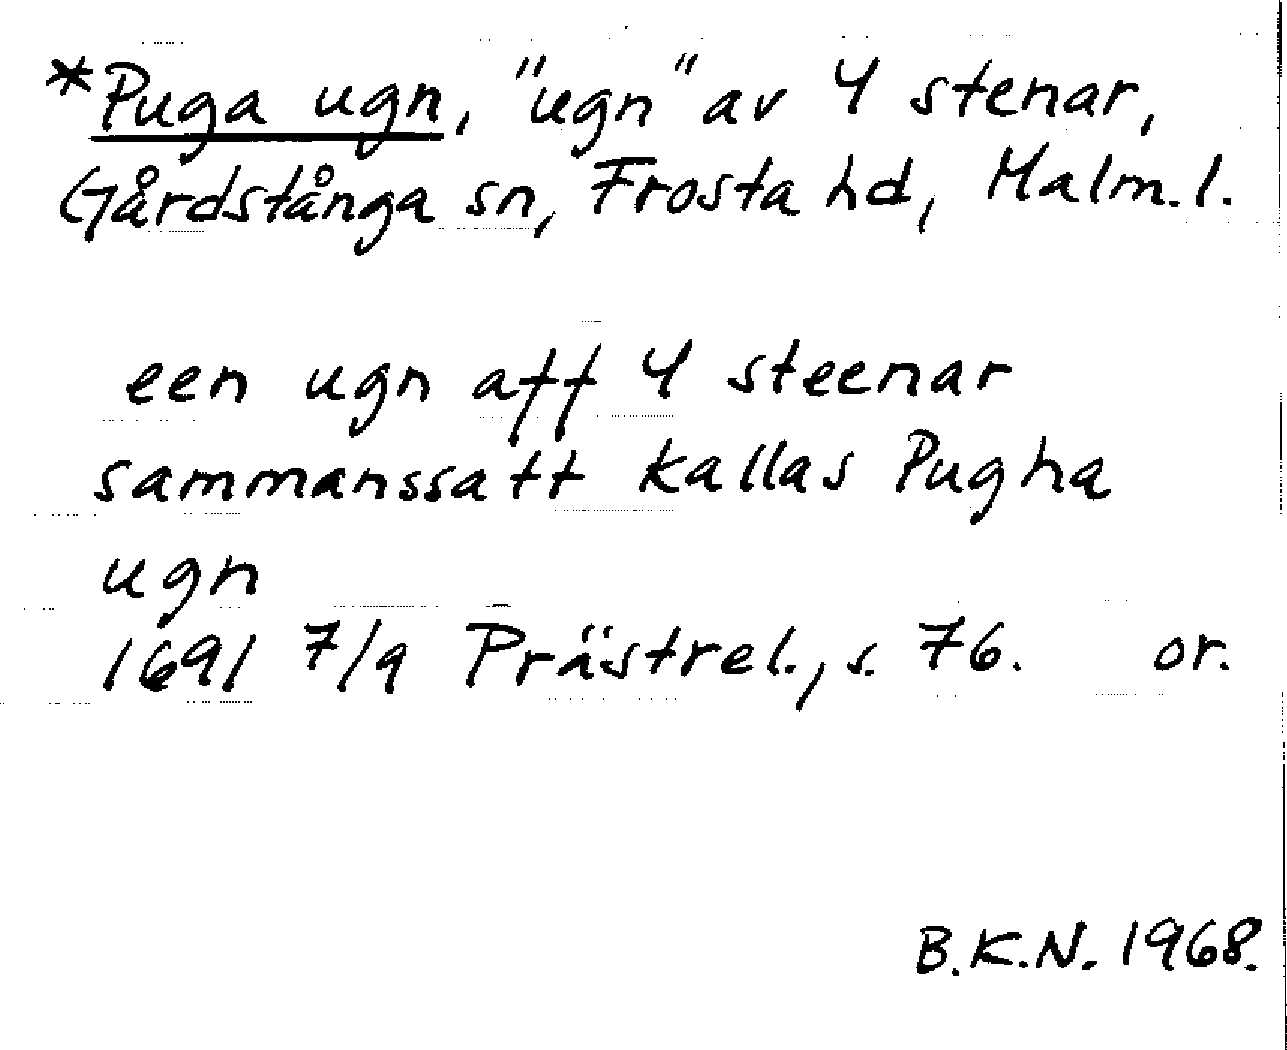 *Puga ugn, "ugn" av 4 stenar,
Gårdstånga sn, Frosta hd, Malm. l.
een ugn aff 4 steenar
sammanssatt kallas Pugha
ugn
1691 7/9 Prästrel., s. 76. or.
B.K.N. 1968.